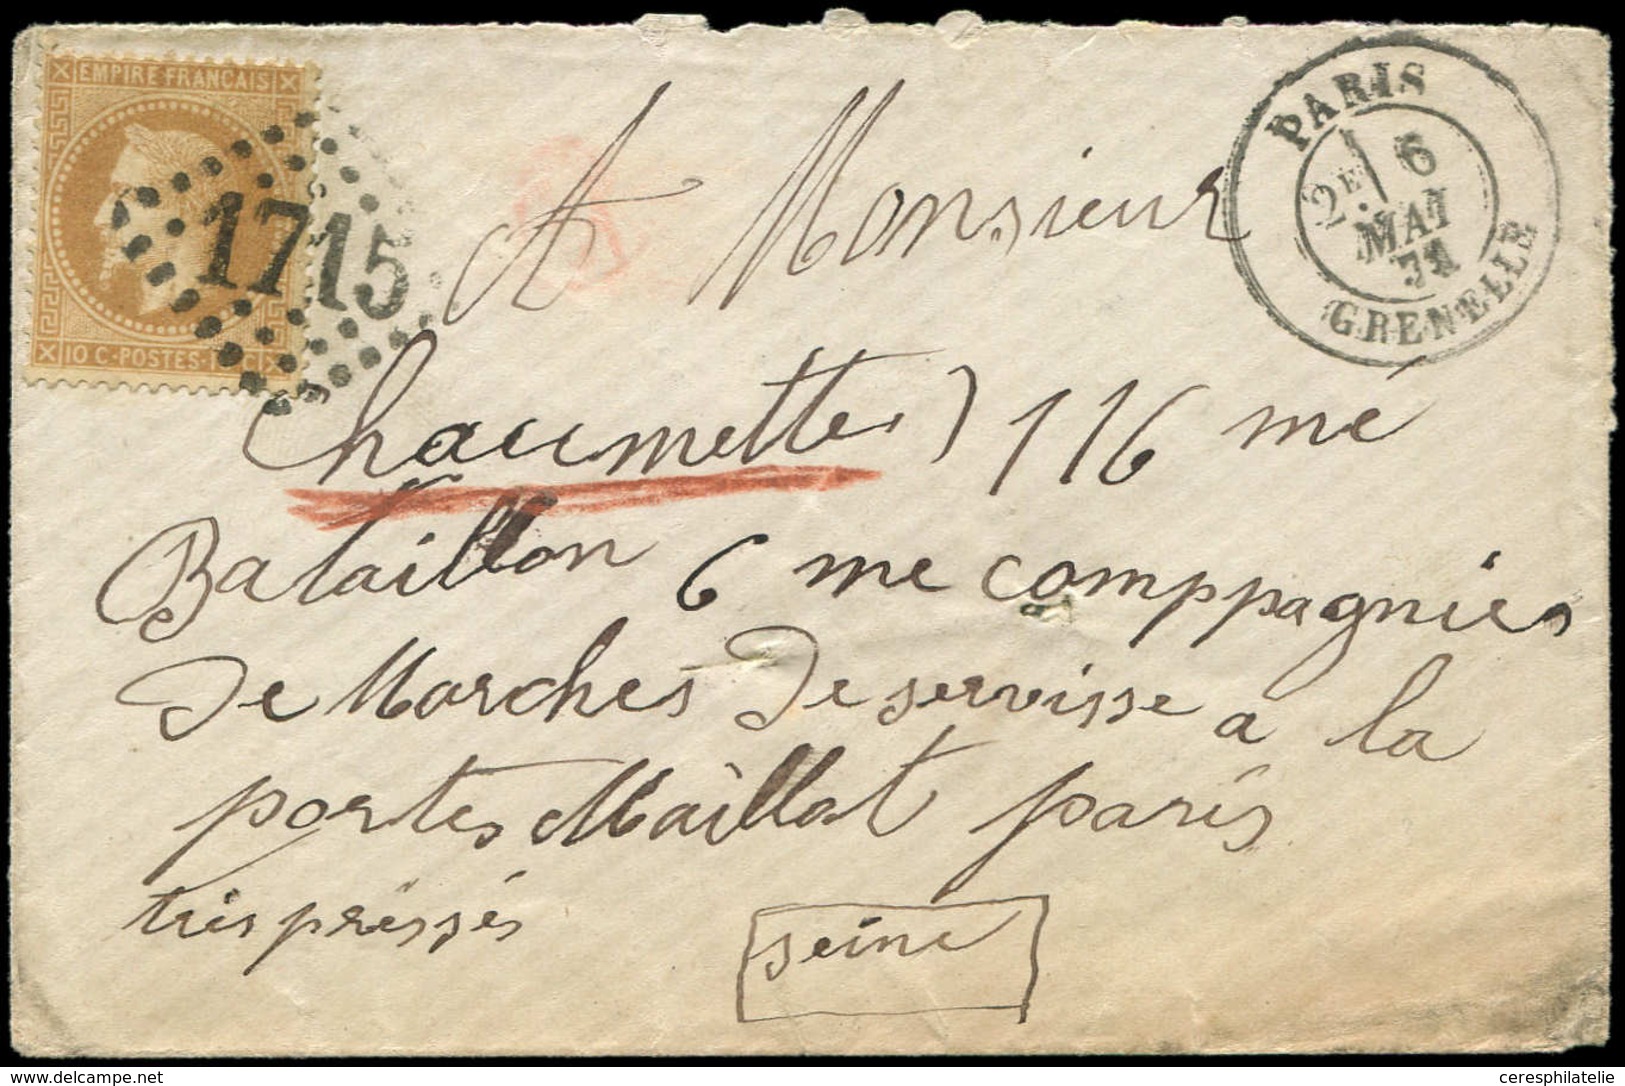 EMPIRE FRANCAIS
10 C·POSTES·10 C
1715
PARIS
2E 6
MAI
71
GRENELLE
A Monsieur
Chaumettes 116 me
Bataillon 6 me comppagnies
De Marches De servisse a la
portes Maillat paris
tris préssés
seine
ceresphilatelie